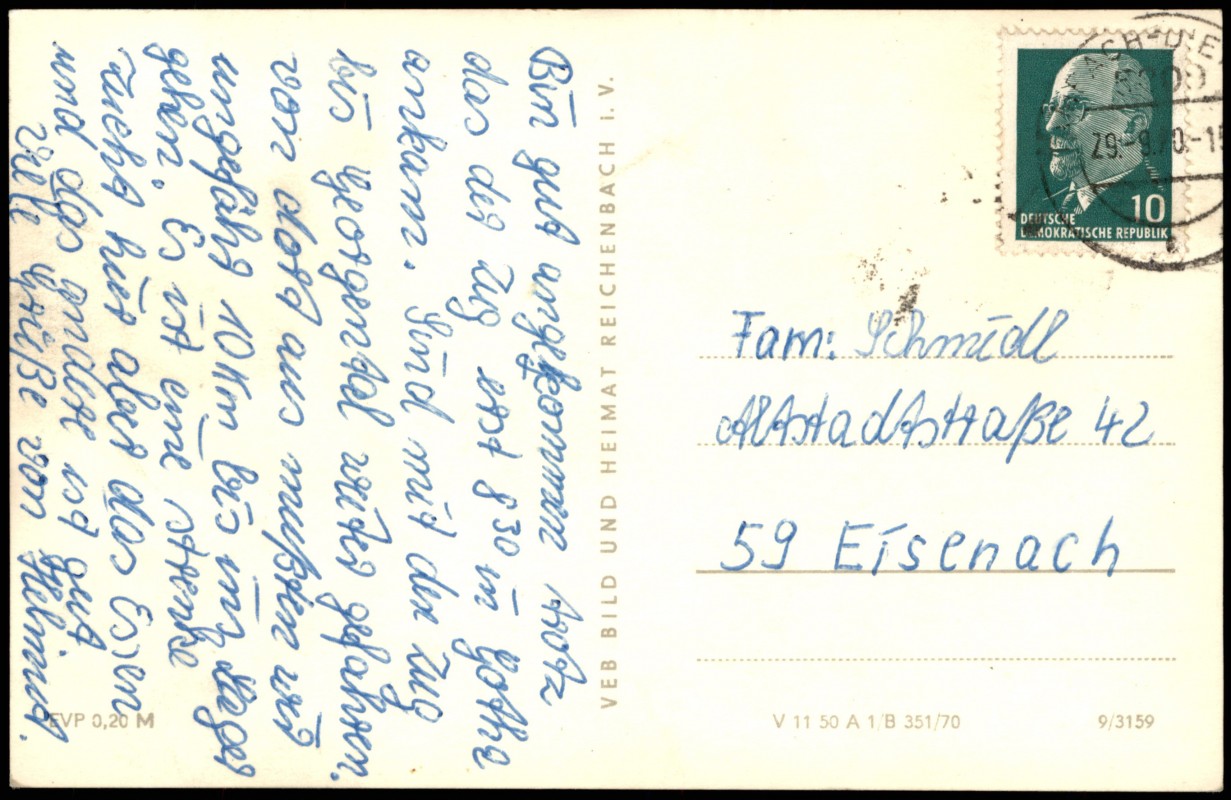 Bin gut angekommen trotz
das der Zug erst 8³⁰ in Gotha
ankam. Sind mit den Zug
bis Georgental weiter gefahren.
von dort aus mußten wir
ungefähr 10 Km bis ins Lager
gehen. Es ist eine strenke
Zucht hier aber das Essen
und das andere ist gut
Viele Grüße von Helmut.
EVP 0,20 M
VEB BILD UND HEIMAT REICHENBACH I. V.
5800
29.-9.70.-1
10
DEUTSCHE
DEMOKRATISCHE REPUBLIK
Fam: Schmidt
Altstadtstraße 42
59 Eisenach
V 11 50 A 1/B 351/70
9/3159